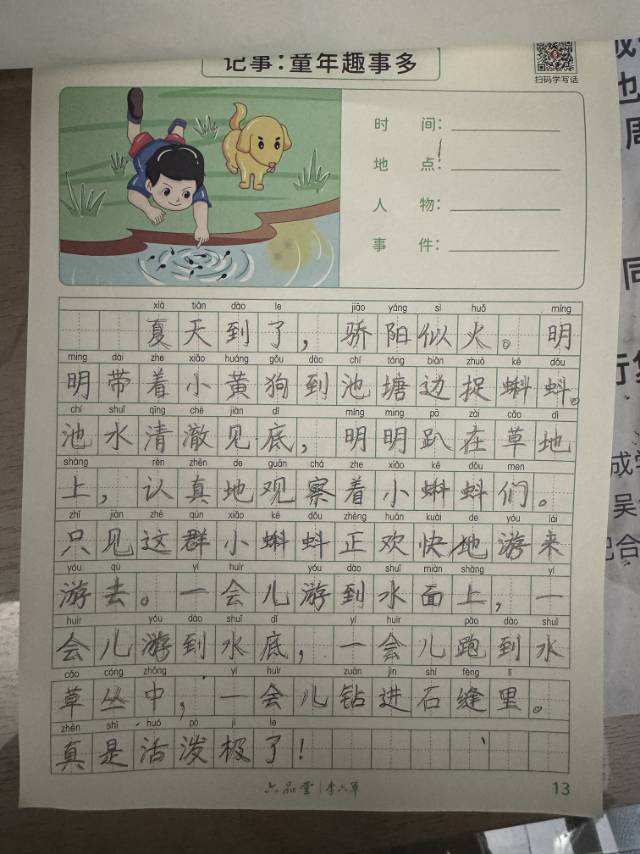 记事：童年趣事多
扫码学写话
时 间：
地 点：
人 物：
事 件：
xià tiān dào le jiāo yáng sì huǒ míng
夏天到了，骄阳似火。明
míng dài zhe xiǎo huáng gǒu dào chí táng biān zhuō kē dǒu
明带着小黄狗到池塘边捉蝌蚪。
chí shuǐ qīng chè jiàn dǐ míng míng pā zài cǎo dì
池水清澈见底，明明趴在草地
shàng rèn zhēn de guān chá zhe xiǎo kē dǒu men
上，认真地观察着小蝌蚪们。
zhǐ jiàn zhè qún xiǎo kē dǒu zhèng huān kuài de yóu lái
只见这群小蝌蚪正欢快地游来
yóu qù yí huìr yóu dào shuǐ miàn shàng yí
游去。一会儿游到水面上，一
huìr yóu dào shuǐ dǐ yí huìr pǎo dào shuǐ
会儿游到水底，一会儿跑到水
cǎo cóng zhōng yí huìr zuān jìn shí fèng lǐ
草丛中，一会儿钻进石缝里。
zhēn shì huó pō jí le
真是活泼极了！
六品堂 李六军
13
成学
吴